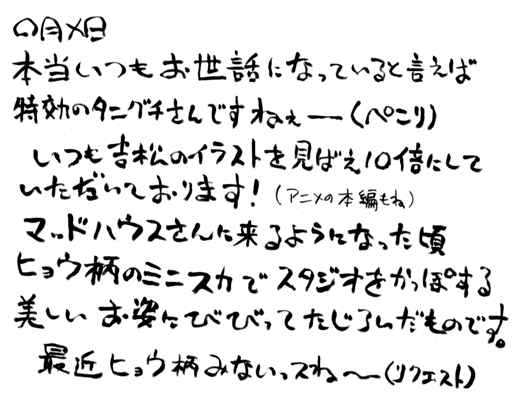 ○月×日
本当いつもお世話になっていると言えば
特効のタニグチさんですねぇー(ペこり)
いつも吉松のイラストを見ばえ10倍にして
いただいております!(アニメの本編もね)
マッドハウスさんに来るようになった頃
ヒョウ柄のミニスカでスタジオをかっぽする
美しいお姿にびびってたじろいだものです。
最近ヒョウ柄みないっスね〜(リクエスト)